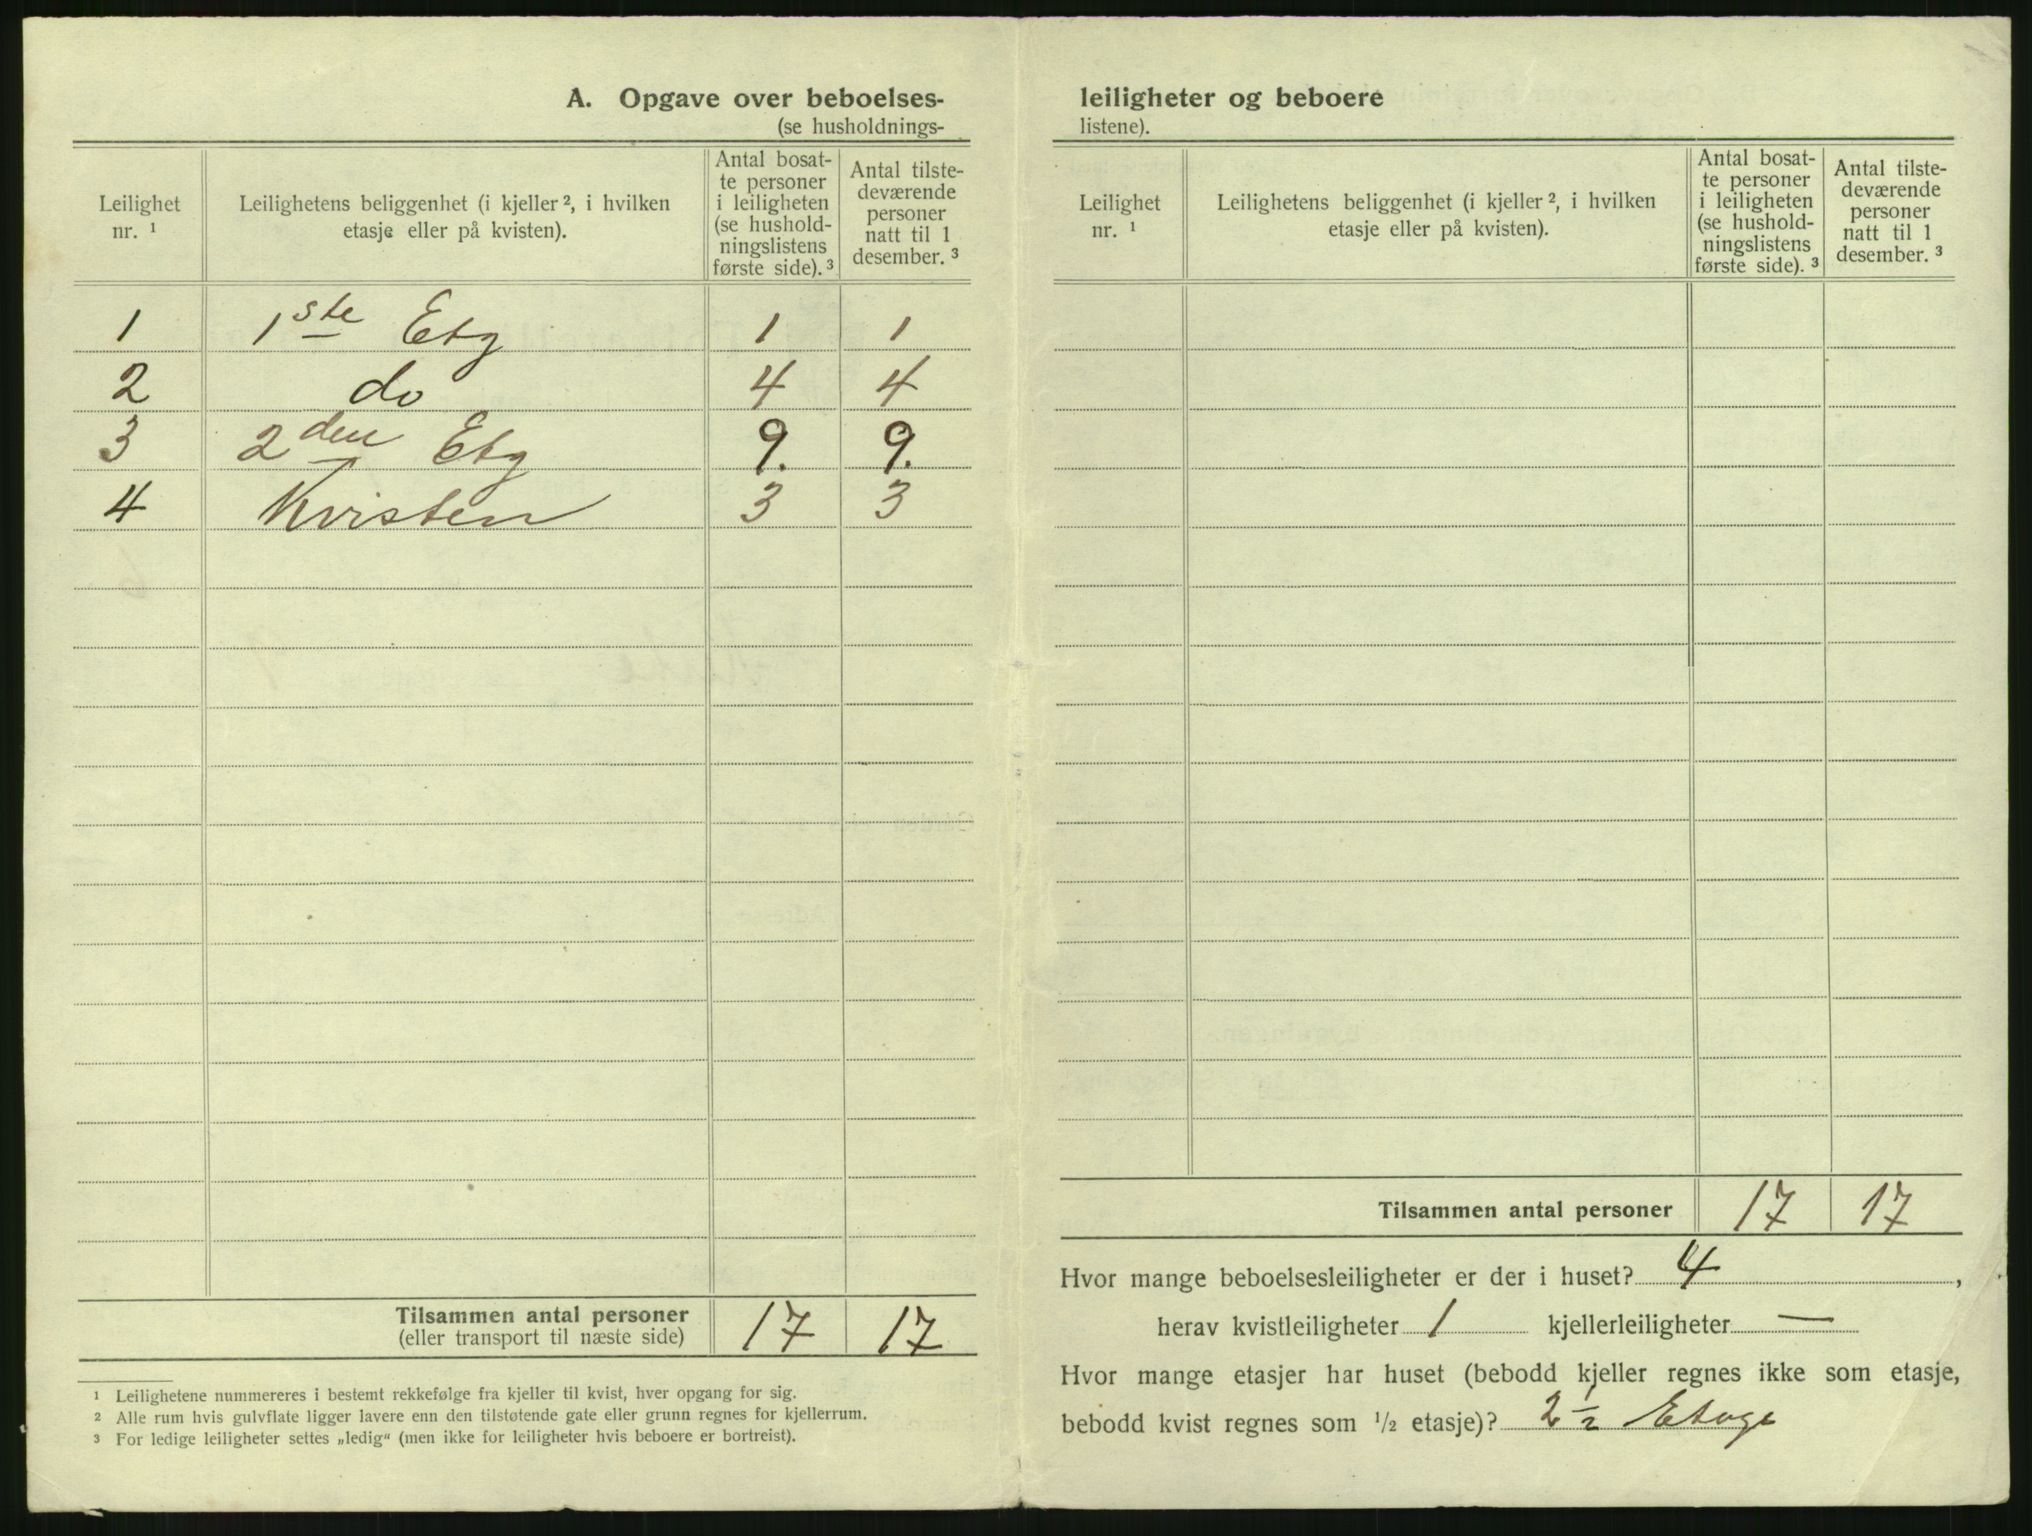 A. Opgave over beboelses-
(se husholdnings-
Leilighet
nr. ¹
Leilighetens beliggenhet (i kjeller ², i hvilken
etasje eller på kvisten).
Antal bosat-
te personer
i leiligheten
(se hushold-
ningslistens
første side). ³
Antal tilste-
deværende
personer
natt til 1
desember. ³
1 1ste Etg 1 1
2 do 4 4
3 2den Etg 9. 9.
4 Kvisten 3 3
Tilsammen antal personer
(eller transport til næste side)
17 17
¹ Leilighetene nummereres i bestemt rekkefølge fra kjeller til kvist, hver opgang for sig.
² Alle rum hvis gulvflate ligger lavere enn den tilstøtende gate eller grunn regnes for kjellerrum.
³ For ledige leiligheter settes „ledig“ (men ikke for leiligheter hvis beboere er bortreist).
leiligheter og beboere
listene).
Leilighet
nr. ¹
Leilighetens beliggenhet (i kjeller ², i hvilken
etasje eller på kvisten).
Antal bosat-
te personer
i leiligheten
(se hushold-
ningslistens
første side). ³
Antal tilste-
deværende
personer
natt til 1
desember. ³
Tilsammen antal personer 17 17
Hvor mange beboelsesleiligheter er der i huset? 4 ,
herav kvistleiligheter 1 kjellerleiligheter —
Hvor mange etasjer har huset (bebodd kjeller regnes ikke som etasje,
bebodd kvist regnes som ½ etasje)? 2½ Etage